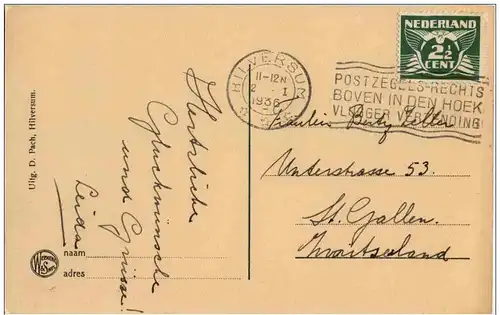 NEDERLAND
2½
CENT
HILVERSUM
11-12N
2 I
1936
POSTZEGELS RECHTS
BOVEN IN DEN HOEK
VLUGGER VERZENDING
Uitg. D. Pach, Hilversum.
Hertzliche
Glückwünsche
und Grüsse!
Leida
naam
adres
Fräulein Berty Zeller
Unterstrasse 53.
St. Gallen.
Zwitserland